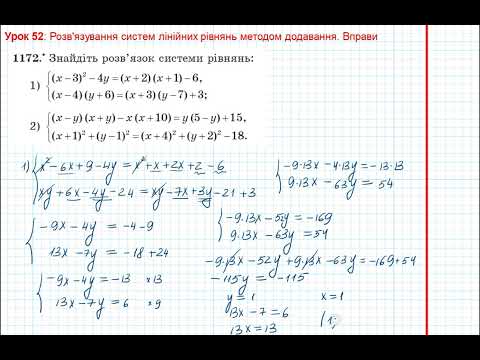 Урок 52: Розв'язування систем лінійних рівнянь методом додавання. Вправи
1172.• Знайдіть розв'язок системи рівнянь:
1) {(x−3)²−4y=(x+2)(x+1)−6,
(x−4)(y+6)=(x+3)(y−7)+3;
2) {(x−y)(x+y)−x(x+10)=y(5−y)+15,
(x+1)²+(y−1)²=(x+4)²+(y+2)²−18.
1) {x²−6x+9−4y=x²+x+2x+2−6
xy+6x−4y−24=xy−7x+3y−21+3
{−9x−4y=−4−9
13x−7y=−18+24
{−9x−4y=−13 ×13
13x−7y=6 ×9
{−9·13x−4·13y=−13·13
9·13x−63y=54
{−9·13x−52y=−169
9·13x−63y=54
−9·13x−52y+9·13x−63y=−169+54
−115y=−115
y=1 x=1
13x−7=6
13x=13 (1;